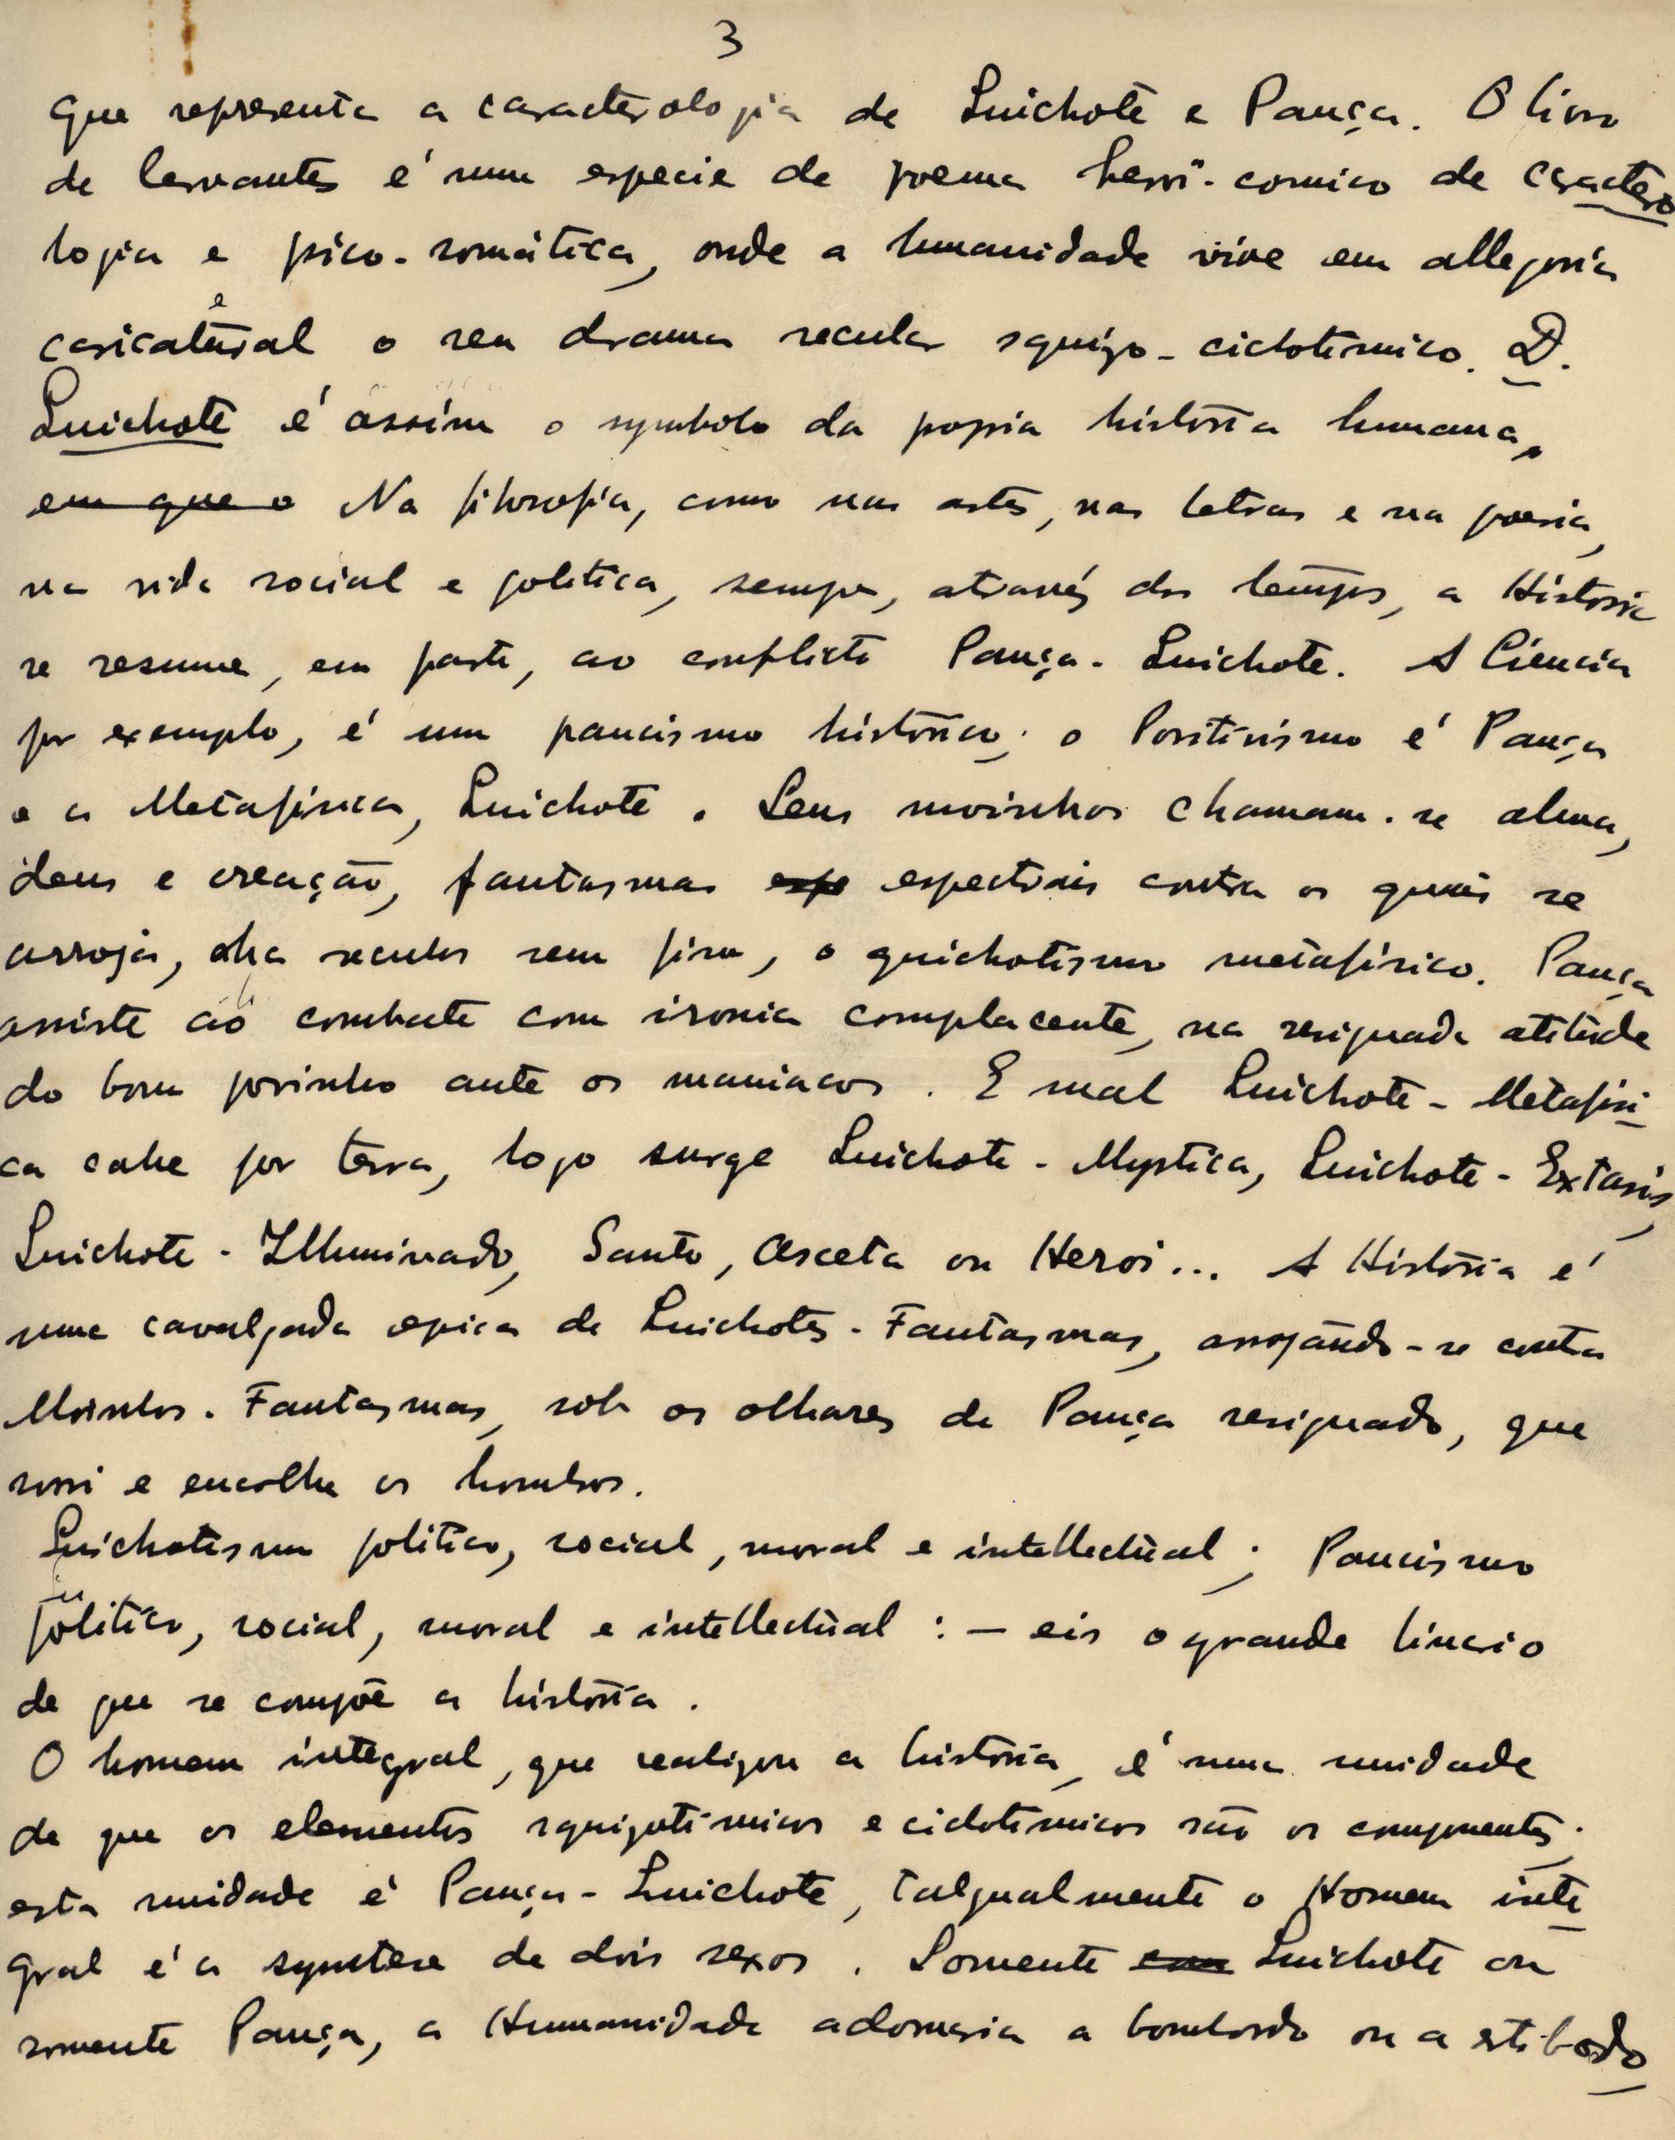 3
que representa a caracterologia de Quichote e Pança. O livro
de Cervantes é uma especie de poema heroi-comico de caractero
logia e psico-somática, onde a humanidade vive em allegoria
caricatural o seu drama secular squizo-ciclotimico. D.
Quichote é assim o symbolo da propria historia humana.
em que o Na filosofia, como nas artes, nas letras e na poesia,
na vida social e politica, sempre, através dos tempos, a Historia
se resume, em parte, ao conflicto Pança-Quichote. A Ciencia
por exemplo, é um pancismo histórico; o Positivismo é Pança
e a Metafisica, Quichote. Seus moinhos chamam-se alma,
deus e creação, fantasmas espe espectrais contra os quais se
arroja, ha seculos sem fim, o quichotismo metafisico. Pança
assiste ao combate com ironia complacente, na resignada atitude
do bom posinho ante os maniacos. E mal Quichote-Metafisi
ca cahe por terra, logo surge Quichote-Mystica, Quichote-Extasis,
Quichote-Illuminado, Santo, Asceta ou Heroi... A História é
uma cavalgada epica de Quichotes-Fantasmas, arrojando-se contra
Moinhos-Fantasmas, sob os olhares de Pança resignado, que
sorri e encolhe os hombros.
Quichotismo politico, social, moral e intellectual; Pancismo
politico, social, moral e intellectual: — eis o grande binario
de que se compõe a história.
O homem integral, que realizou a história, é uma unidade
de que os elementos squizotimicos e ciclotimicos são os componentes;
esta unidade é Pança-Quichote, talqualmente o Homem inte
gral é a syntese de dois sexos. Somente Quichote ou
somente Pança, a Humanidade adornaria a bombordo ou a estibordo